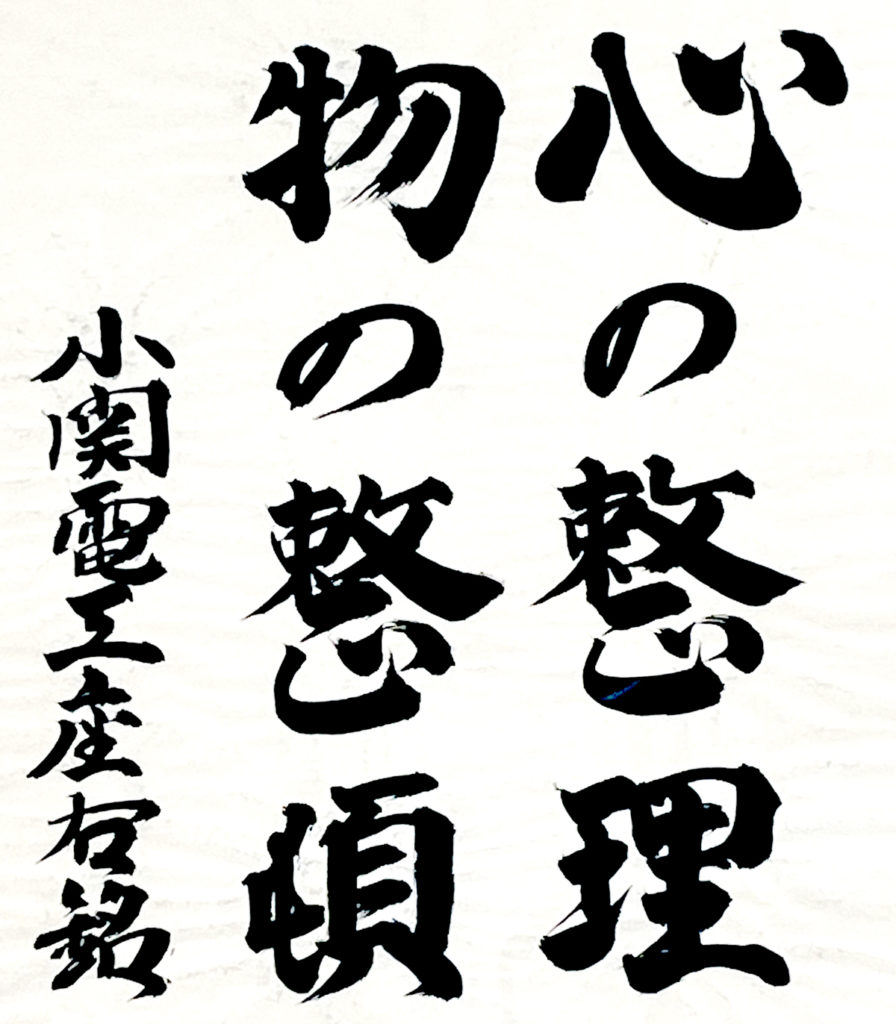 心の整理
物の整頓
小関電工座右銘